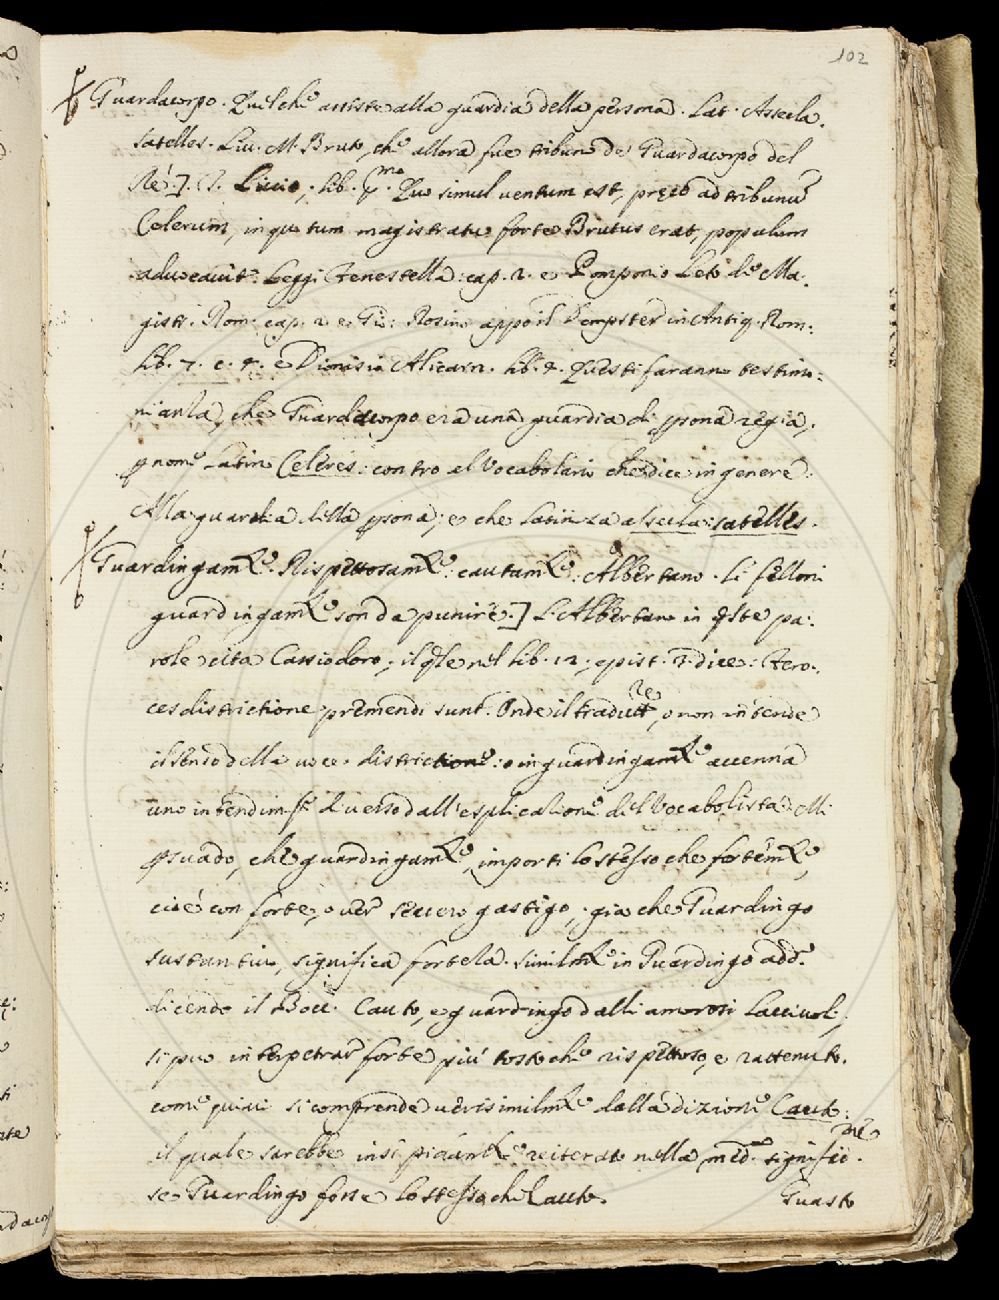 102
Guardacorpo. Quel che assiste alla guardia della persona. Lat. Assecla.
satelles. Liu. M. Bruto, che allora fue tribuno de' Guardacorpo del
Rè.]. T. Liuio, lib. pmo. Quo simul uentum est, pręco ad tribunũ
Celerum, in quo tum magistratu forte Brutus erat, populum
aduocauit. Leggi Fenestella: cap. 2. e Pomponio Leto de Ma-
gistr. Rom. cap. 2. e Gio: Rosino appo il Dempster in Antiq. Rom:
lib. 7. c. 4. e Dionisio Alicarn. lib. 2. Questi faranno testimo=
nianza, che Guardacorpo era una guardia di psona regia,
p nome Latino Celeres: contro al Vocabolario che dice in genere:
Alla guardia della psona; e che latinza assecla: satelles.
Guardingamte. Rispettosamte: cautamte: Albertano. Li felloni
guardingamte son da punire.] L'Albertano in qste pa-
role cita Cassiodoro, il qle nel lib. 12. epist. 3. dice: Fero-
ces districtione premendi sunt. Onde il tradutt re, o non intende
il senso della uoce. districtione: o in guardingamte accenna
uno intendimto diuerso dall'esplicazione del Vocabolista. Mi
psuado, che guardingamte, importi lo stesso che fortemte,
cioè con forte, o uer seuero gastigo, già che Guardingo
sustantiuo, significa forteza. similmte in Guardingo add.
dicendo il Bocc. Cauto, e guardingo dalli amorosi lacciuoli,
si puo interpetrar forte più tosto che rispettoso, e rattenuto.
come quiui si comprende uerisimilmte dalla dizione Cauto:
il quale sarebbe insipidamte reiterato nella medma signific ne.
se Guardingo fosse lo stesso che Cauto.
Guasto